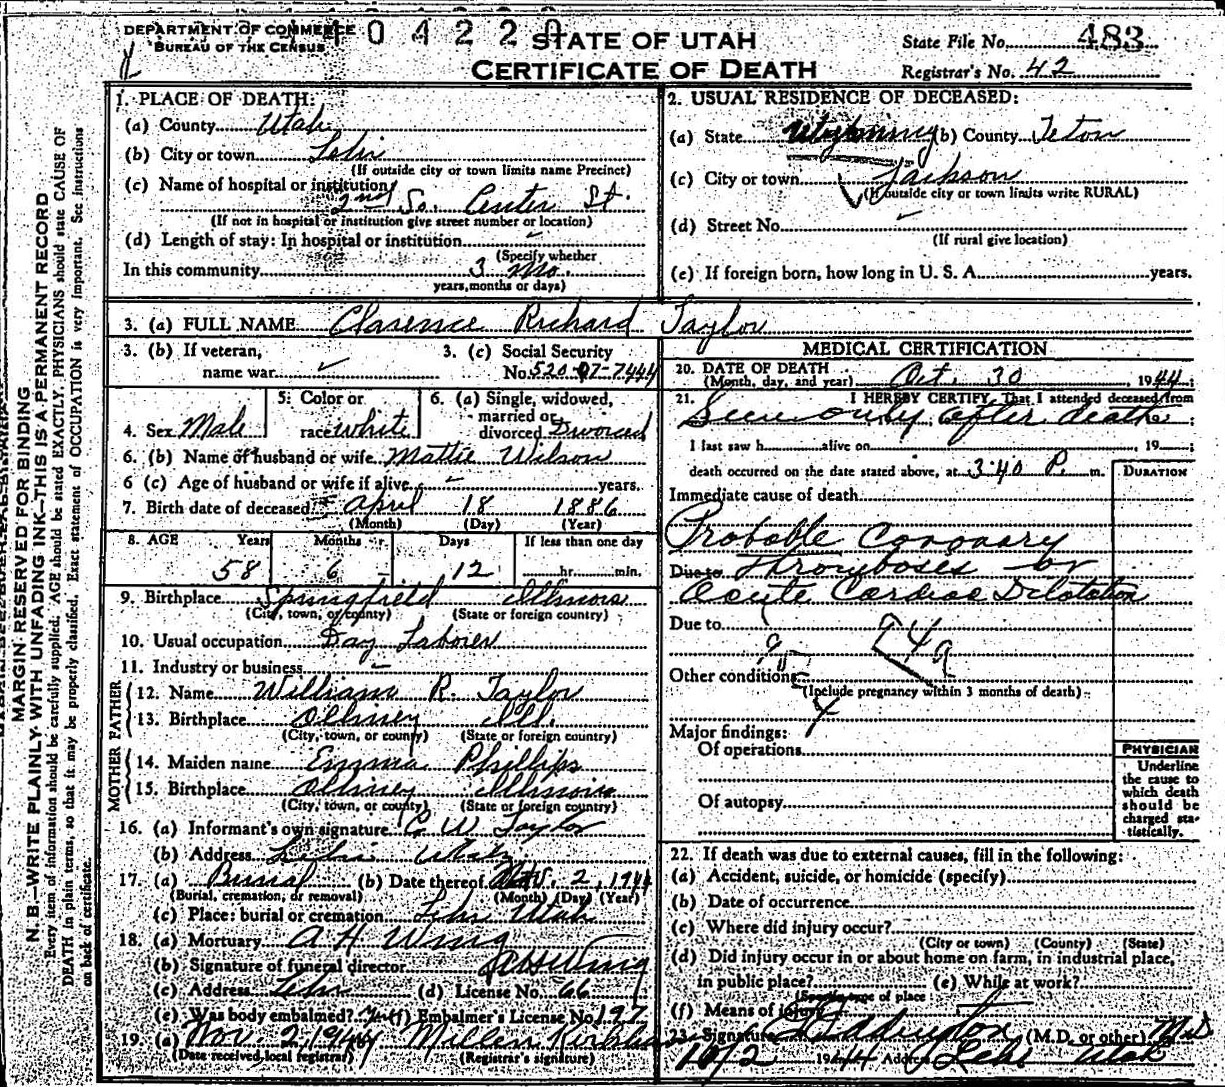 DEPARTMENT OF COMMERCE
BUREAU OF THE CENSUS
STATE OF UTAH
CERTIFICATE OF DEATH
State File No. 483
Registrar's No. 42
MARGIN RESERVED FOR BINDING
N. B.—WRITE PLAINLY WITH UNFADING INK—THIS IS A PERMANENT RECORD
Every item of information should be carefully supplied. AGE should be stated EXACTLY. PHYSICIANS should state CAUSE OF
DEATH in plain terms, so that it may be properly classified. Exact statement of OCCUPATION is very important. See instructions
on back of certificate.
1. PLACE OF DEATH:
(a) County Utah
(b) City or town Lehi
(If outside city or town limits name Precinct)
(c) Name of hospital or institution
2nd So. Center St.
(If not in hospital or institution give street number or location)
(d) Length of stay: In hospital or institution
(Specify whether
In this community 3 Mo.
years, months or days)
2. USUAL RESIDENCE OF DECEASED:
(a) State Wyoming (b) County Teton
(c) City or town Jackson
(If outside city or town limits write RURAL)
(d) Street No.
(If rural give location)
(e) If foreign born, how long in U. S. A. years.
3. (a) FULL NAME Clarence Richard Taylor
3. (b) If veteran,
name war
3. (c) Social Security
No. 520-07-7444
4. Sex Male
5. Color or
race White
6. (a) Single, widowed,
married or
divorced Divorced
6. (b) Name of husband or wife Mattie Wilson
6 (c) Age of husband or wife if alive years.
7. Birth date of deceased April 18 1886
(Month) (Day) (Year)
8. AGE Years Months Days If less than one day
58 6 12 hr. min.
9. Birthplace Springfield Illinois
(City, town, or county) (State or foreign country)
10. Usual occupation Day Laborer
11. Industry or business
FATHER
12. Name William R. Taylor
13. Birthplace Ollney Ill.
(City, town, or county) (State or foreign country)
MOTHER
14. Maiden name Emma Phillips
15. Birthplace Ollney Illinois
(City, town, or county) (State or foreign country)
16. (a) Informant's own signature C W Taylor
(b) Address Lehi Utah
17. (a) Burial (b) Date thereof Nov. 2, 1944
(Burial, cremation, or removal) (Month) (Day) (Year)
(c) Place: burial or cremation Lehi Utah
18. (a) Mortuary A H Wing
(b) Signature of funeral director Wing
(c) Address Lehi (d) License No. 66
(e) Was body embalmed? (f) Embalmer's License No. 197
19. (a) Nov. 2, 1944
(Date received local registrar) (Registrar's signature)
MEDICAL CERTIFICATION
20. DATE OF DEATH
(Month, day, and year) Oct. 30, 1944;
21. I HEREBY CERTIFY, That I attended deceased from
Seen only after death
I last saw h alive on 19
death occurred on the date stated above, at 3:40 P. m.
DURATION
Immediate cause of death
Probable Coronary
Due to Thromboses or
Acute Cardiac Dilatation
Due to
94a
Other conditions
(Include pregnancy within 3 months of death)
Major findings:
Of operations
Of autopsy
PHYSICIAN
Underline
the cause to
which death
should be
charged sta-
tistically.
22. If death was due to external causes, fill in the following:
(a) Accident, suicide, or homicide (specify)
(b) Date of occurrence
(c) Where did injury occur?
(City or town) (County) (State)
(d) Did injury occur in or about home on farm, in industrial place,
in public place? (e) While at work?
(Specify type of place
(f) Means of injury
23. Signature Eddington (M.D. or other) M.D
1944 Address Lehi Utah